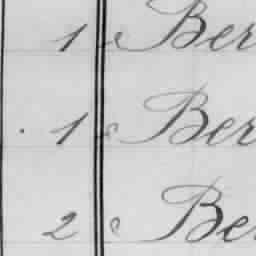 1 Ber
1 Ber
2 Be